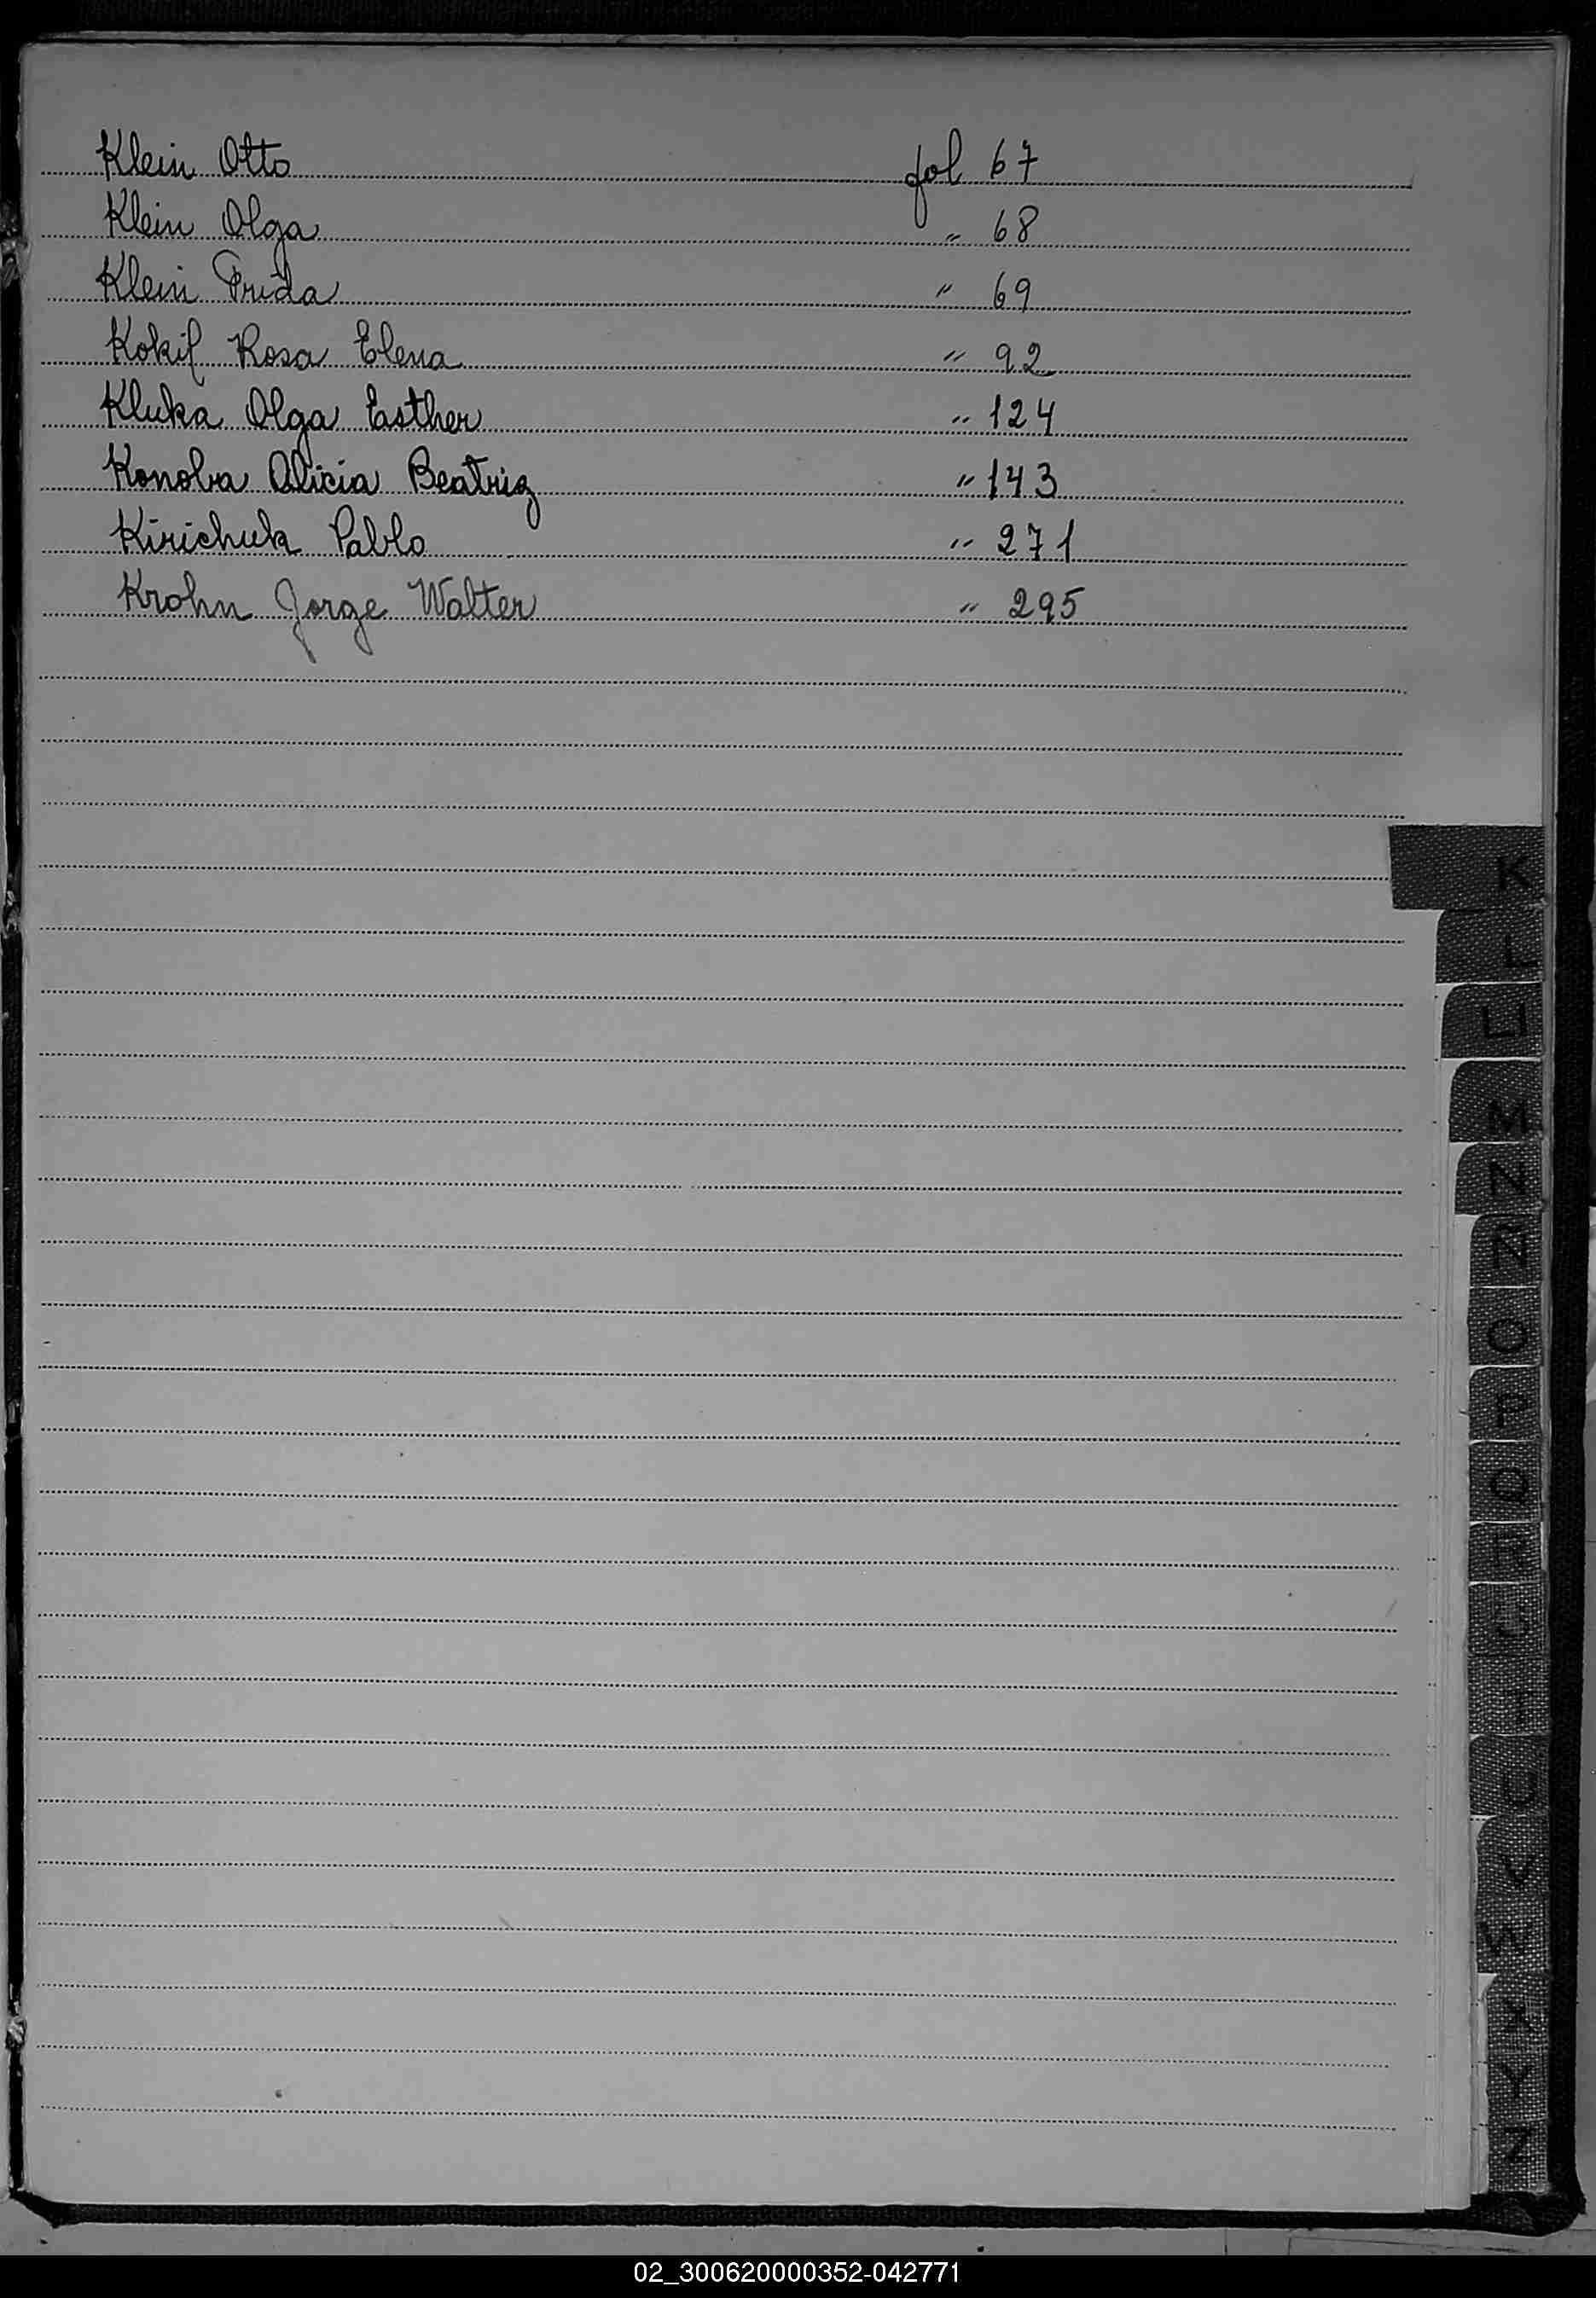 Klein Otto fol 67
Klein Olga " 68
Klein Frida " 69
Kokif Rosa Elena " 92
Kluka Olga Easther " 124
Konoba Alicia Beatriz " 143
Kirichuk Pablo " 271
Krohn Jorge Walter " 295
K
L
LL
M
N
Ñ
O
P
Q
R
S
T
U
V
W
X
Y
Z
02_300620000352-042771